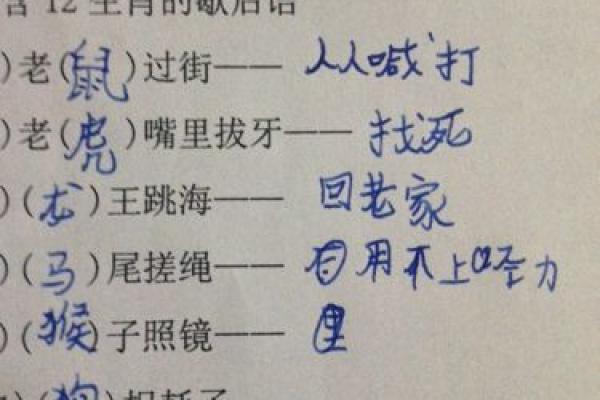 含12生肖的歇后语
)老(鼠)过街——人人喊打
)老(虎)嘴里拔牙——找死
)(龙)王跳海——回老家
)(马)尾搓绳——用不上力
)(猴)子照镜——
)(狗)